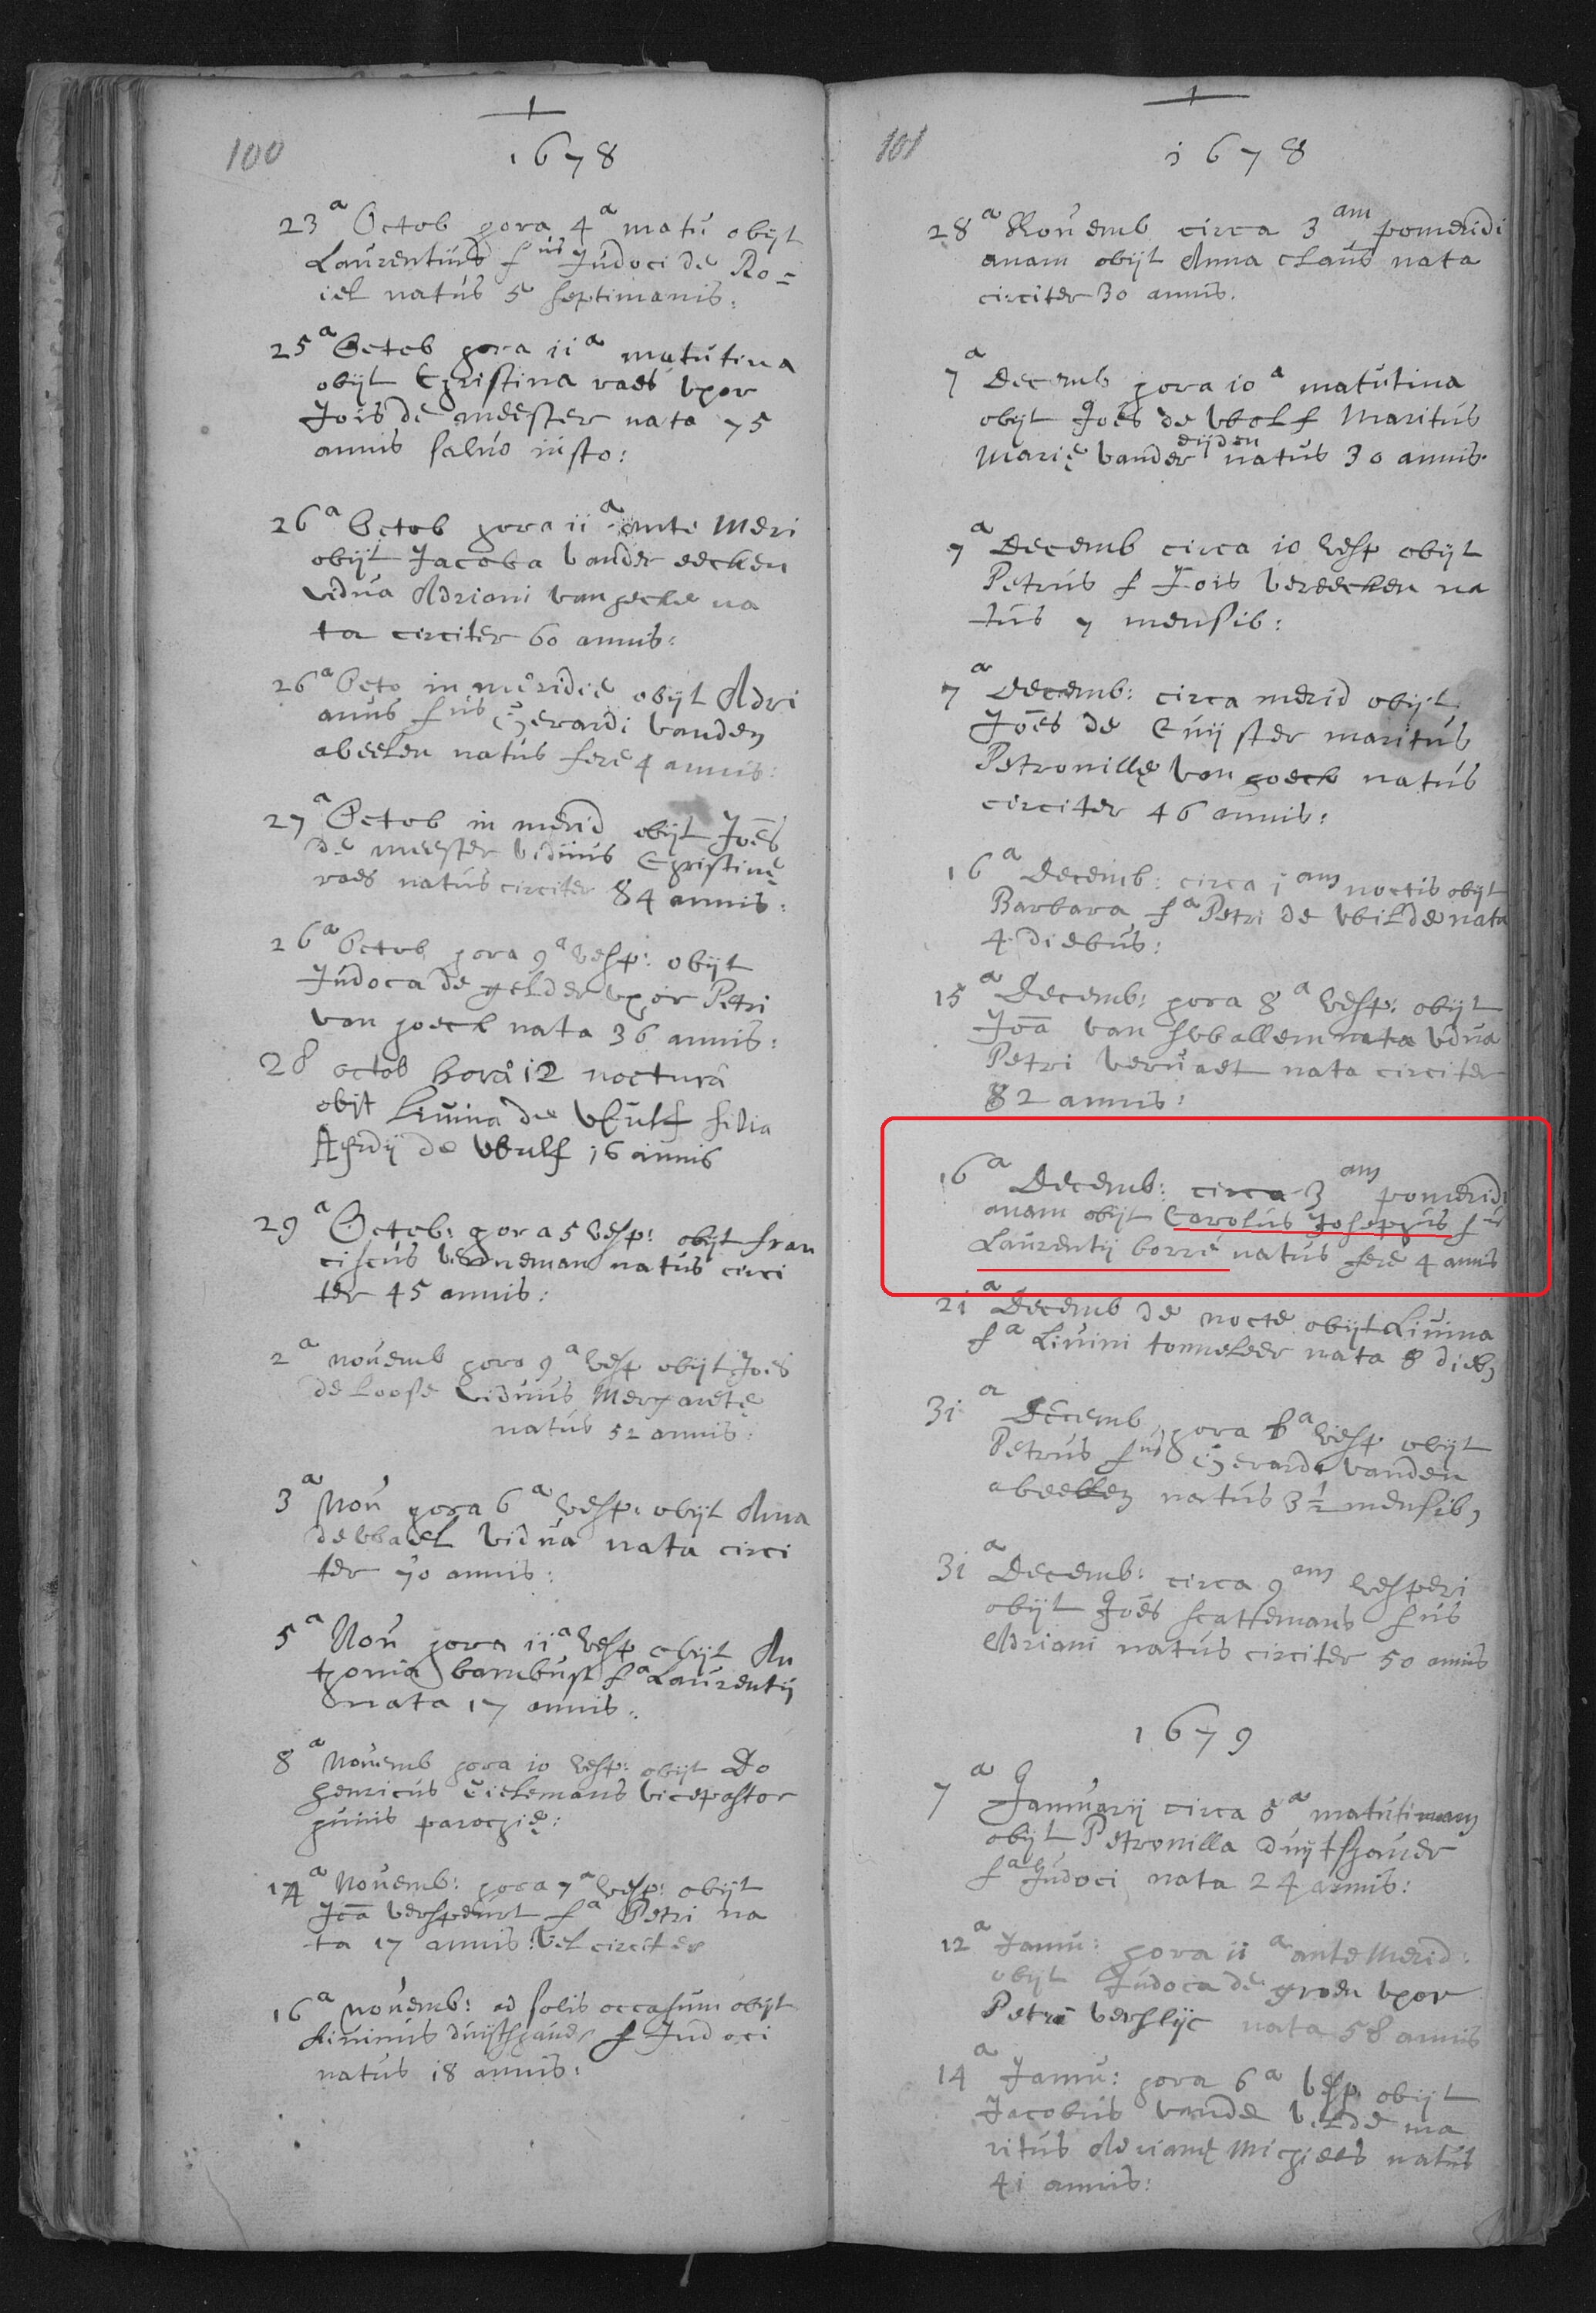 100
1678
23a Octob hora 4a matu obijt
Laurentius fius Judoci de Ro=
iel natus 5 septimanis:
25a Octob hora ii a matutina
obijt Christina raes vxor
Jois de meester nata 75
annis salvo iusto:
26a Octob hora ii a ante Meri
obijt Jacoba vander eecken
vidua Adriani van hecke na
ta circiter 60 annis:
26a Octo in meridie obijt Adri
anus fius Gerardi vanden
abeelen natus fere 4 annis:
27a Octob in merid obijt Joes
de meester viduus Christinę
raes natus circiter 84 annis:
26a Octob hora 9a vesp: obijt
Judoca de gelder vxor Petri
van hoeck nata 36 annis:
28 octob hora 12 nocturâ
obijt Liuina de Wulf filia
de Wulf 16 annis
29a Octob: hora 5 vesp: obijt fran
ciscus natus circi
ter 45 annis:
2a nouemb hora 9a vesp obijt Joes
de Loose viduus Margaretę
natus 52 annis:
3a Nou hora 6a vesp: obijt Anna
de wael vidua nata circi
ter 70 annis:
5a Nou hora iia vesp obijt An
thonia bambust fa Laurentij
nata 17 annis:
8a Nouemb hora io vesp: obijt Do
henricus tielemans vicepastor
huius parochię:
14a Nouemb: hora 7a vesp: obijt
Joa verspeurt fa Petri na
ta 17 annis: vel circiter
16a nouemb: ad solis occasum obijt
Liuinus duijtschauer f Judoci
natus 18 annis:
101
1678
28a Nouemb circa 3am pomeridi
anam obijt Anna Claus nata
circiter 30 annis.
7a Decemb hora io a matutina
obijt Joes de wolf Maritus
Marię vander eijden natus 30 annis.
7a Decemb circa io vesp obijt
Petrus f Jois vereecken na
tus 7 mensib:
7a Decemb: circa merid obijt
Joes de Cuijster maritus
Petronillę van hoeck natus
circiter 46 annis:
16a Decemb: circa iam noctis obijt
Barbara fa Petri de wilde nata
4 diebus:
15a Decemb: hora 8a vesp: obijt
Joa van swallem nata vidua
Petri veruaet nata circiter
82 annis:
16a Decemb: circa 3am pomeridi
anam obijt Carolus Josephus fius
Laurentij borré natus fere 4 annis
21a Decemb de nocte obijt Liuina
fa Liuini tonneleer nata 8 dieb,
31a Decemb, hora 8a vesp obijt
Petrus fius Gerardi vanden
abeelen natus 3½ mensib,
31a Decemb: circa 9am vesperi
obijt Joes scattemans fius
Adriani natus circiter 50 annis
1679
7a Januarij circa 5a matutinam
obijt Petronilla duijtschauer
fa Judoci nata 24 annis:
12a Janu: hora ii a ante Merid:
obijt Judoca de groen vxor
Petri verslijc nata 58 annis
14a Janu: hora 6a vesp: obijt
Jacobus vande velde ma
ritus Adrianę Michiels natus
41 annis: